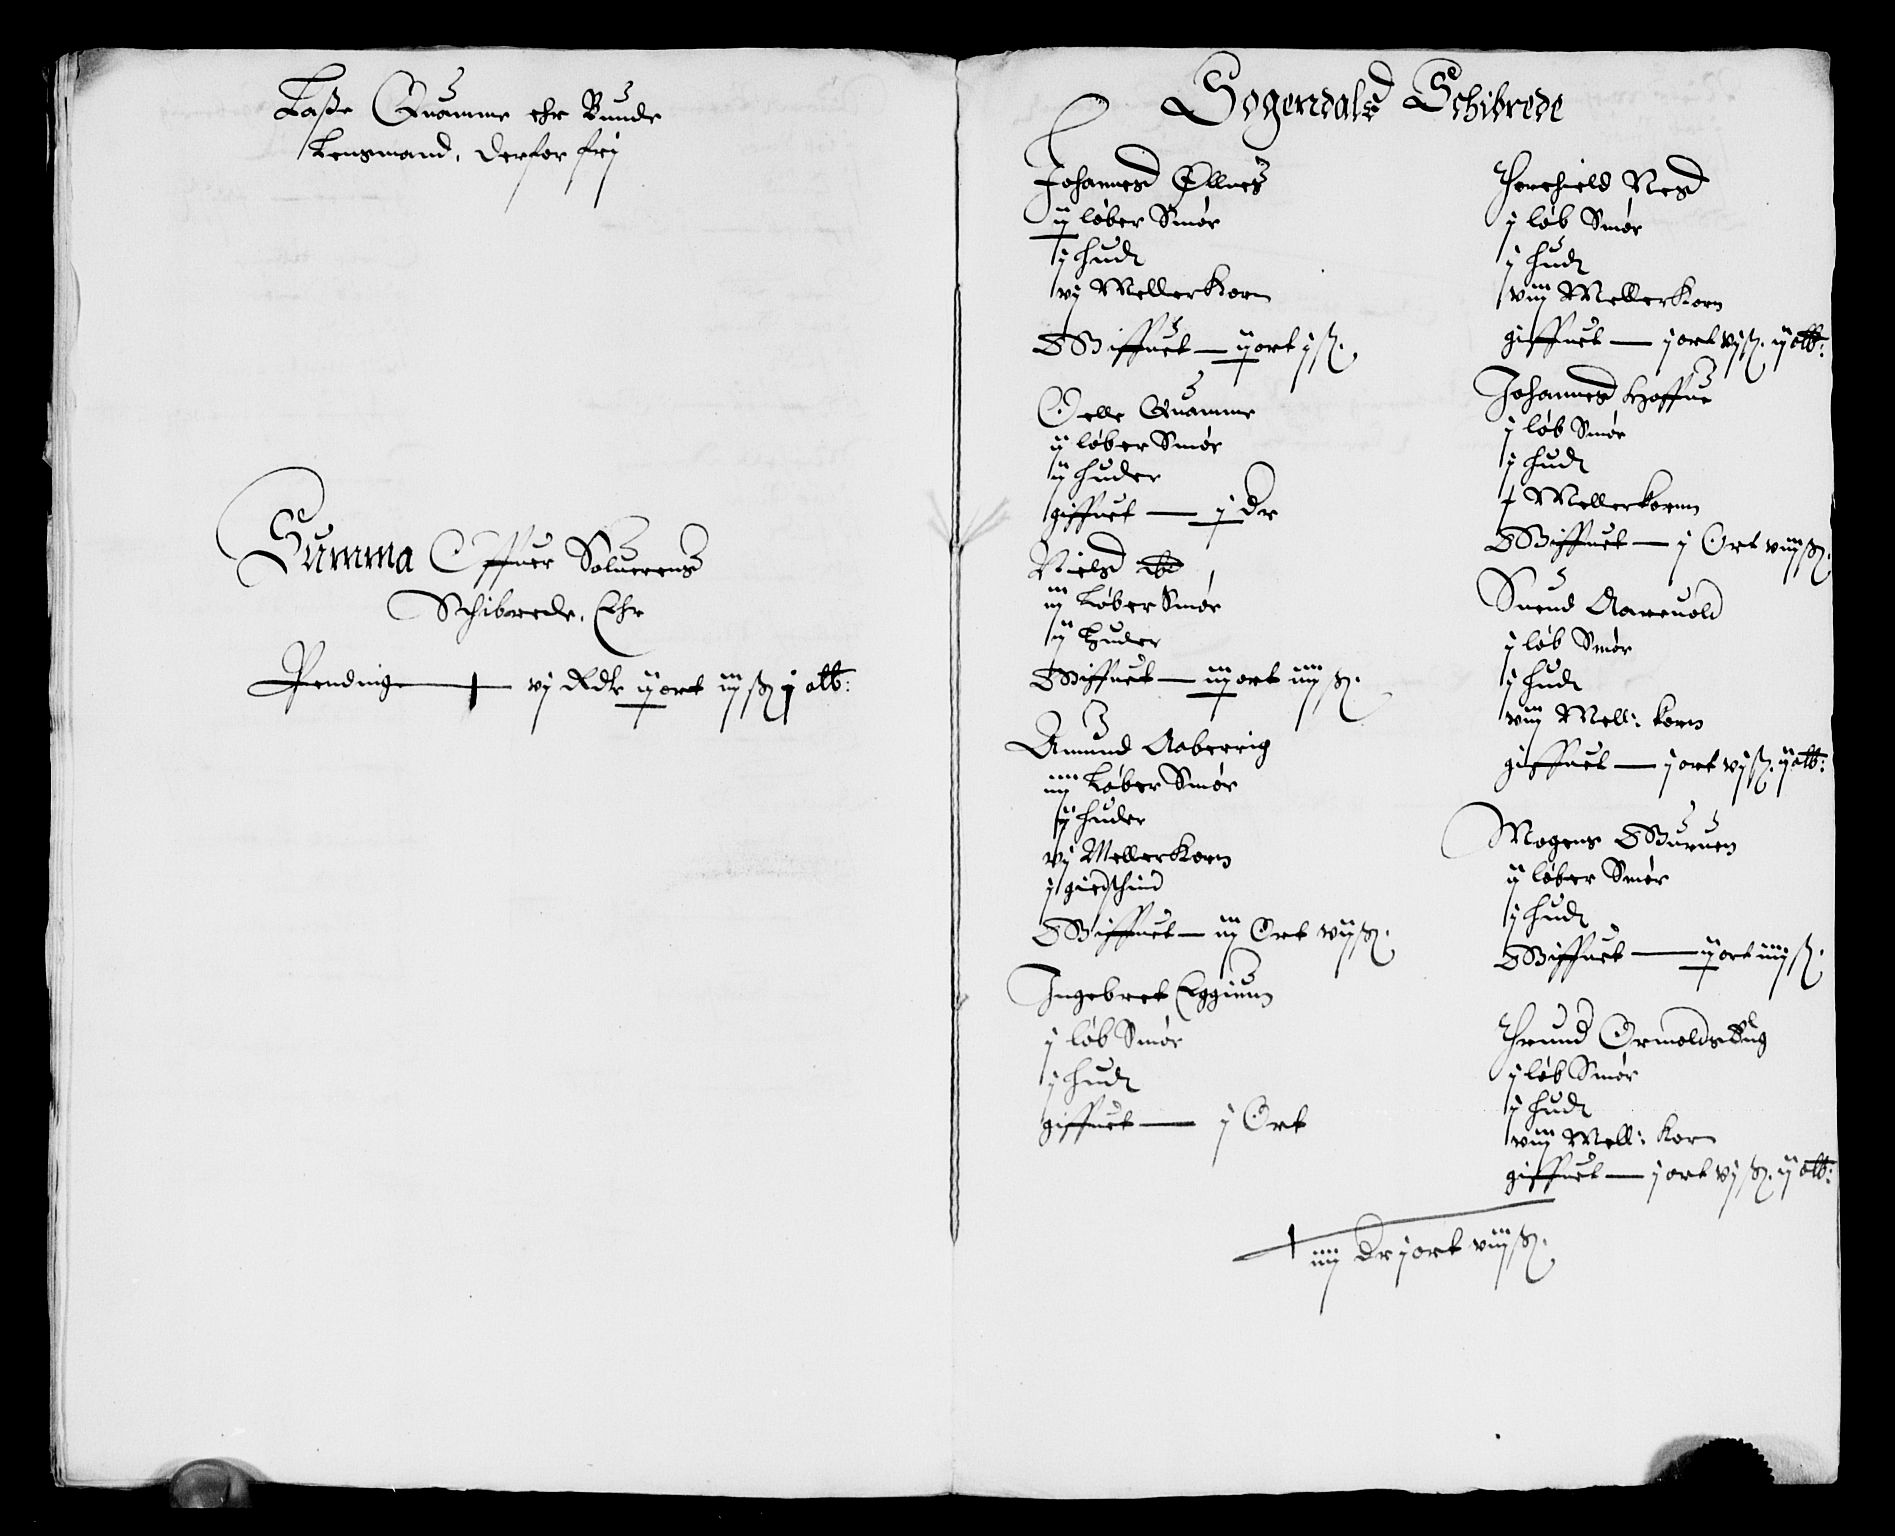 Laße Quamme ehr Bunde
Lensmand, derfor frj
Summa Offuer Soluerens
Schibrede, Ehr
Pending — vj Rdr ij ort iij ß j alb:
Sogendals Schibrede
Johannes Øllnes
ij løber Smør
j hud
vj Mellerkorn
Giffuet — ij ort j ß.
Oelle Quamme
ij løber Smør
ij huder
giffuet — j Dr
Niels ibd
iij Løber Smør
ij Huder
Giffuet — iij ort iiij ß.
Amund Aaberrig
iiij Løber Smør
ij huder
vj Mellerkorn
j giedschind
Giffuet — iij Ort vij ß.
Ingebret Eggium
j løb Smør
j hud
giffuet — j Ort
Torchield Nes
j løb Smør
j hud
viij Mellerkorn
giffuet — j ort vj ß. ij alb:
Johannes Hoffue
j løb Smør
j hud
Mellerkornn
Giffuet — j Ort viij ß.
Suend Aareuold
j løb Smør
j hud
viij Mell: korn
giffuet — j ort vj ß. ij alb:
Mogens Guruen
ij løber Smør
j hud
Giffuet — ij ort iiij ß.
Thrund
j løb Smør
j hud
viij Mell: korn
giffuet — j ort vj ß. ij alb:
iiij Dr j ort viij ß.